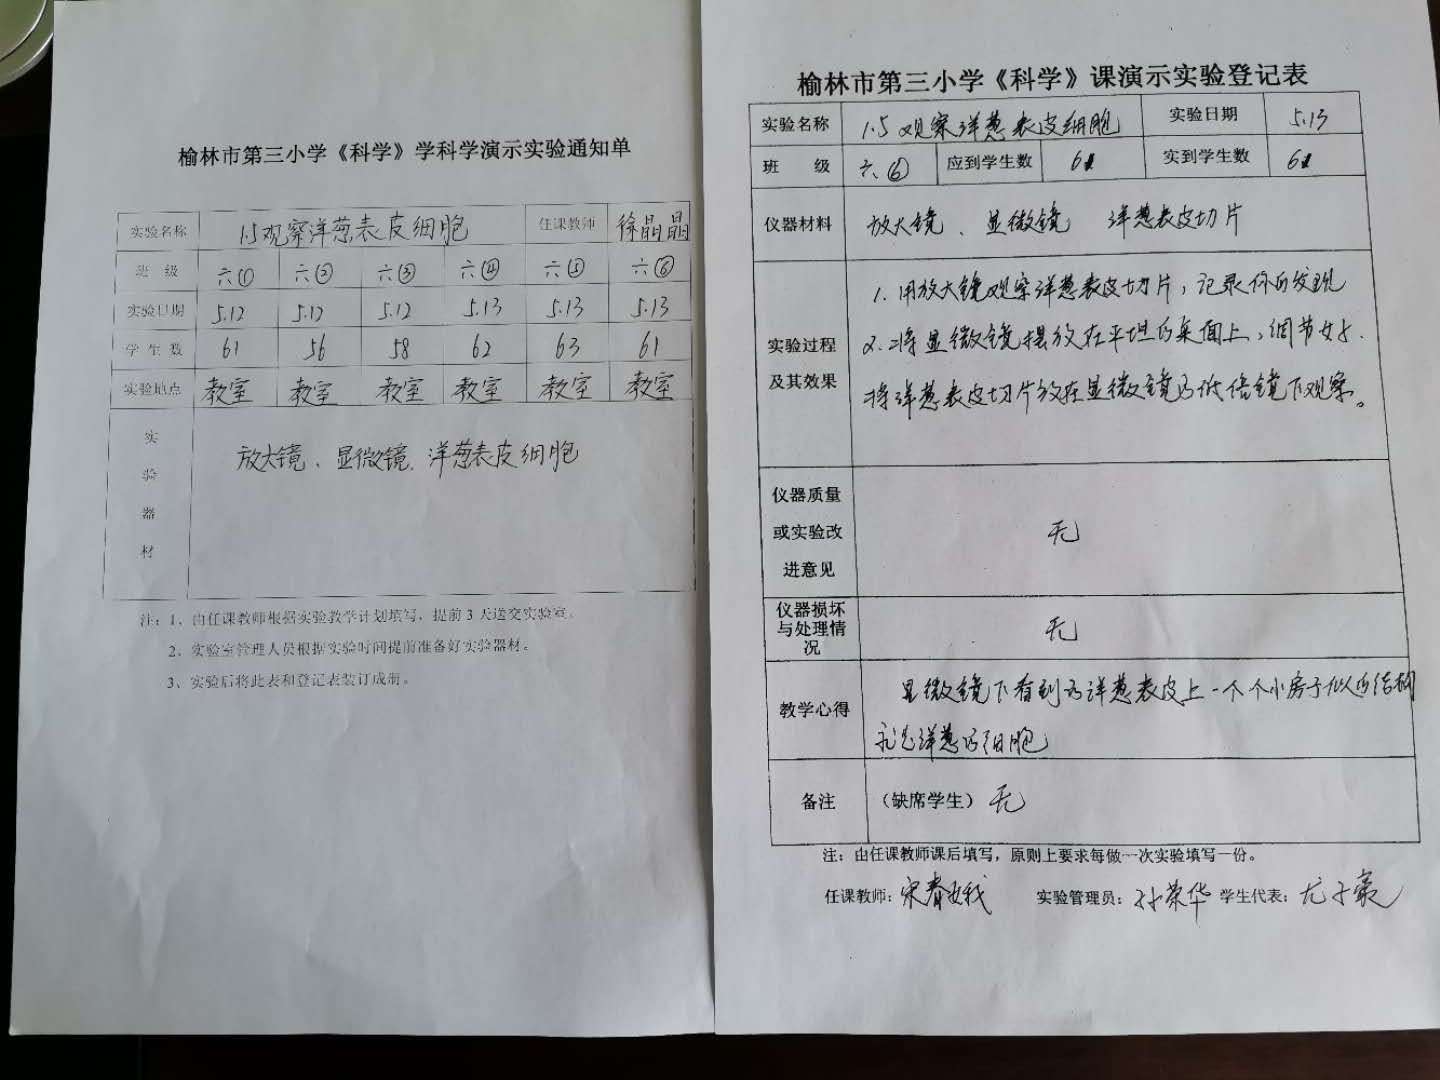 榆林市第三小学《科学》学科学演示实验通知单
实验名称 1.5观察洋葱表皮细胞 任课教师 徐晶晶
班 级 六① 六② 六③ 六④ 六⑤ 六⑥
实验日期 5.12 5.12 5.12 5.13 5.13 5.13
学 生 数 61 56 58 62 63 61
实验地点 教室 教室 教室 教室 教室 教室
实验器材 放大镜、显微镜、洋葱表皮细胞
注：1、由任课教师根据实验教学计划填写，提前3天送交实验室。
2、实验室管理人员根据实验时间提前准备好实验器材。
3、实验后将此表和登记表装订成册。
榆林市第三小学《科学》课演示实验登记表
实验名称 1.5观察洋葱表皮细胞 实验日期 5.13
班 级 六⑥ 应到学生数 61 实到学生数 61
仪器材料 放大镜、显微镜 洋葱表皮切片
1.用放大镜观察洋葱表皮切片，记录你的发现
实验过程 2.将显微镜摆放在平坦的桌面上，调节好.
及其效果 将洋葱表皮切片放在显微镜的低倍镜下观察。
仪器质量
或实验改 无
进意见
仪器损坏
与处理情 无
况
教学心得 显微镜下看到的洋葱表皮上一个个小房子似的结构
就是洋葱的细胞
备注 （缺席学生） 无
注：由任课教师课后填写，原则上要求每做一次实验填写一份。
任课教师： 实验管理员：孙荣华 学生代表：尤子豪